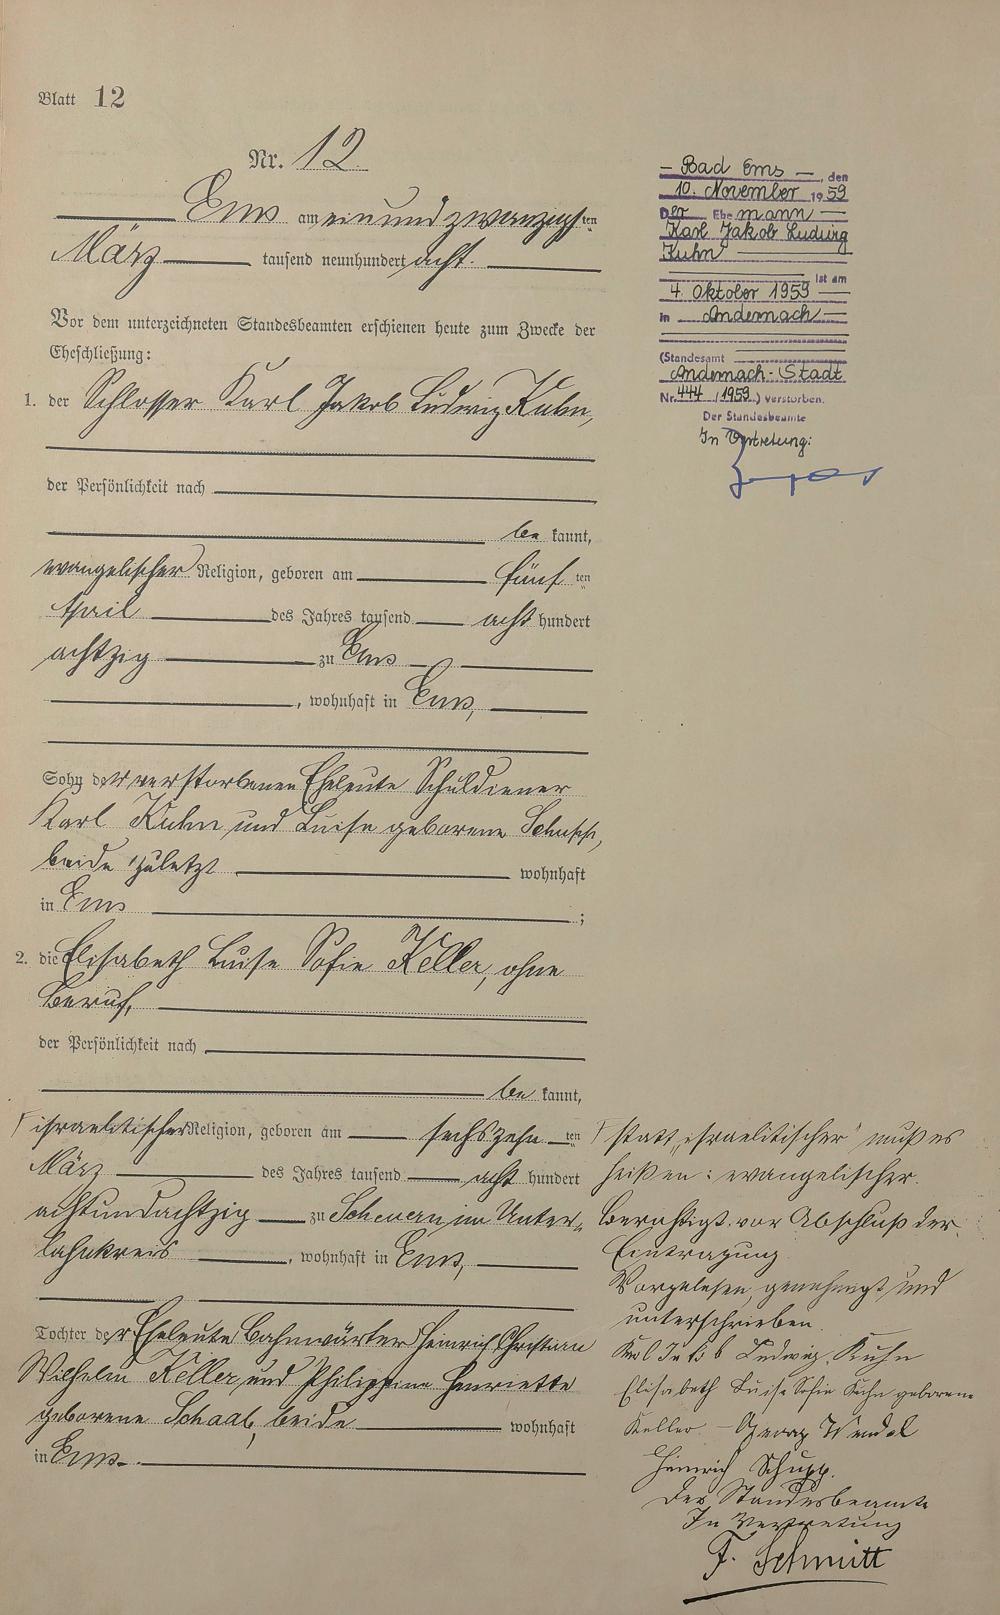 Blatt 12
Nr. 12
Ems am einundzwanzigsten
März tausend neunhundert acht.
Vor dem unterzeichneten Standesbeamten erschienen heute zum Zwecke der
Eheschließung:
1. der Schlosser Karl Jakob Ludwig Kuhn,
der Persönlichkeit nach
be kannt,
evangelischer Religion, geboren am fünf ten
April des Jahres tausend acht hundert
achtzig zu Ems
, wohnhaft in Ems,
Sohn der verstorbenen Eheleute Schuldiener
Karl Kuhn und Luise geborene
beide zuletzt wohnhaft
in Ems ;
2. die Elisabeth Luise Sofie Keller, ohne
Beruf,
der Persönlichkeit nach
be kannt,
israelitischer Religion, geboren am sechszehn ten
März des Jahres tausend acht hundert
achtundachtzig zu Scheuern im Unter-
lahnkreis , wohnhaft in Ems,
Tochter der Eheleute Bahnwärter Heinrich Christian
Wilhelm Keller und Philippine Henriette
geborene Schaab, beide wohnhaft
in Ems.
– Bad Ems – , den
10. November 1959
Der Ehemann –
Karl Jakob Ludwig
Kuhn
ist am
4. Oktober 1959
in Andernach
(Standesamt
Andernach-Stadt
Nr. 444 / 1959 ) verstorben.
Der Standesbeamte
In Vertretung:
statt „israelitischer" muß es
heißen: evangelischer.
Berichtigt vor Abschluß der
Eintragung
Vorgelesen, genehmigt und
unterschrieben.
Karl Jakob Ludwig Kuhn
Elisabeth Luise Sofie Kuhn geborene
Keller – Georg Wendel
Heinrich Schupp.
Der Standesbeamte
In Vertretung
F. Schmitt